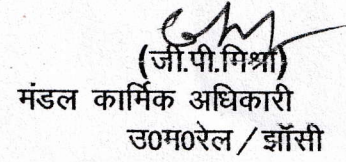 (जी.पी.मिश्रा)
मंडल कार्मिक अधिकारी
उ0म0रेल / झॉसी